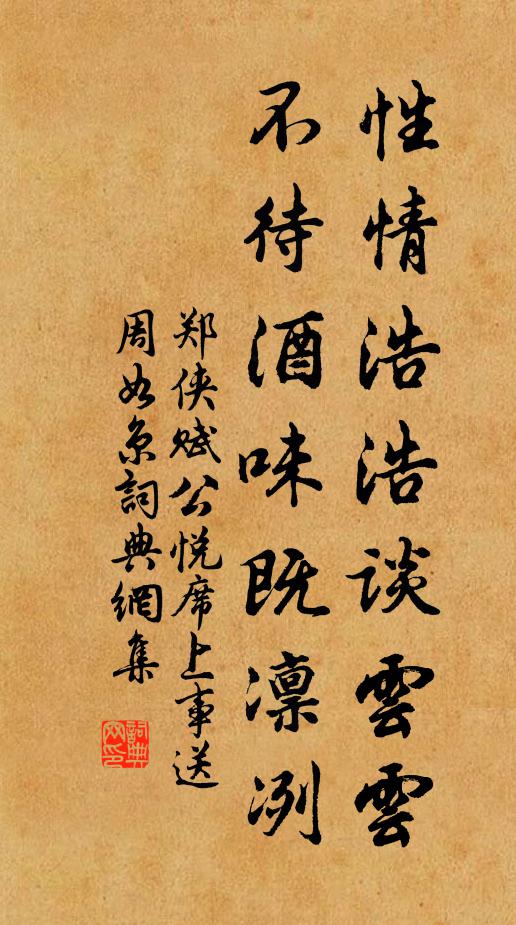 性情浩浩談雲雲
不待酒味既凛冽
郑侠赋公悦席上事送
周如京詞典網集
詞典網印